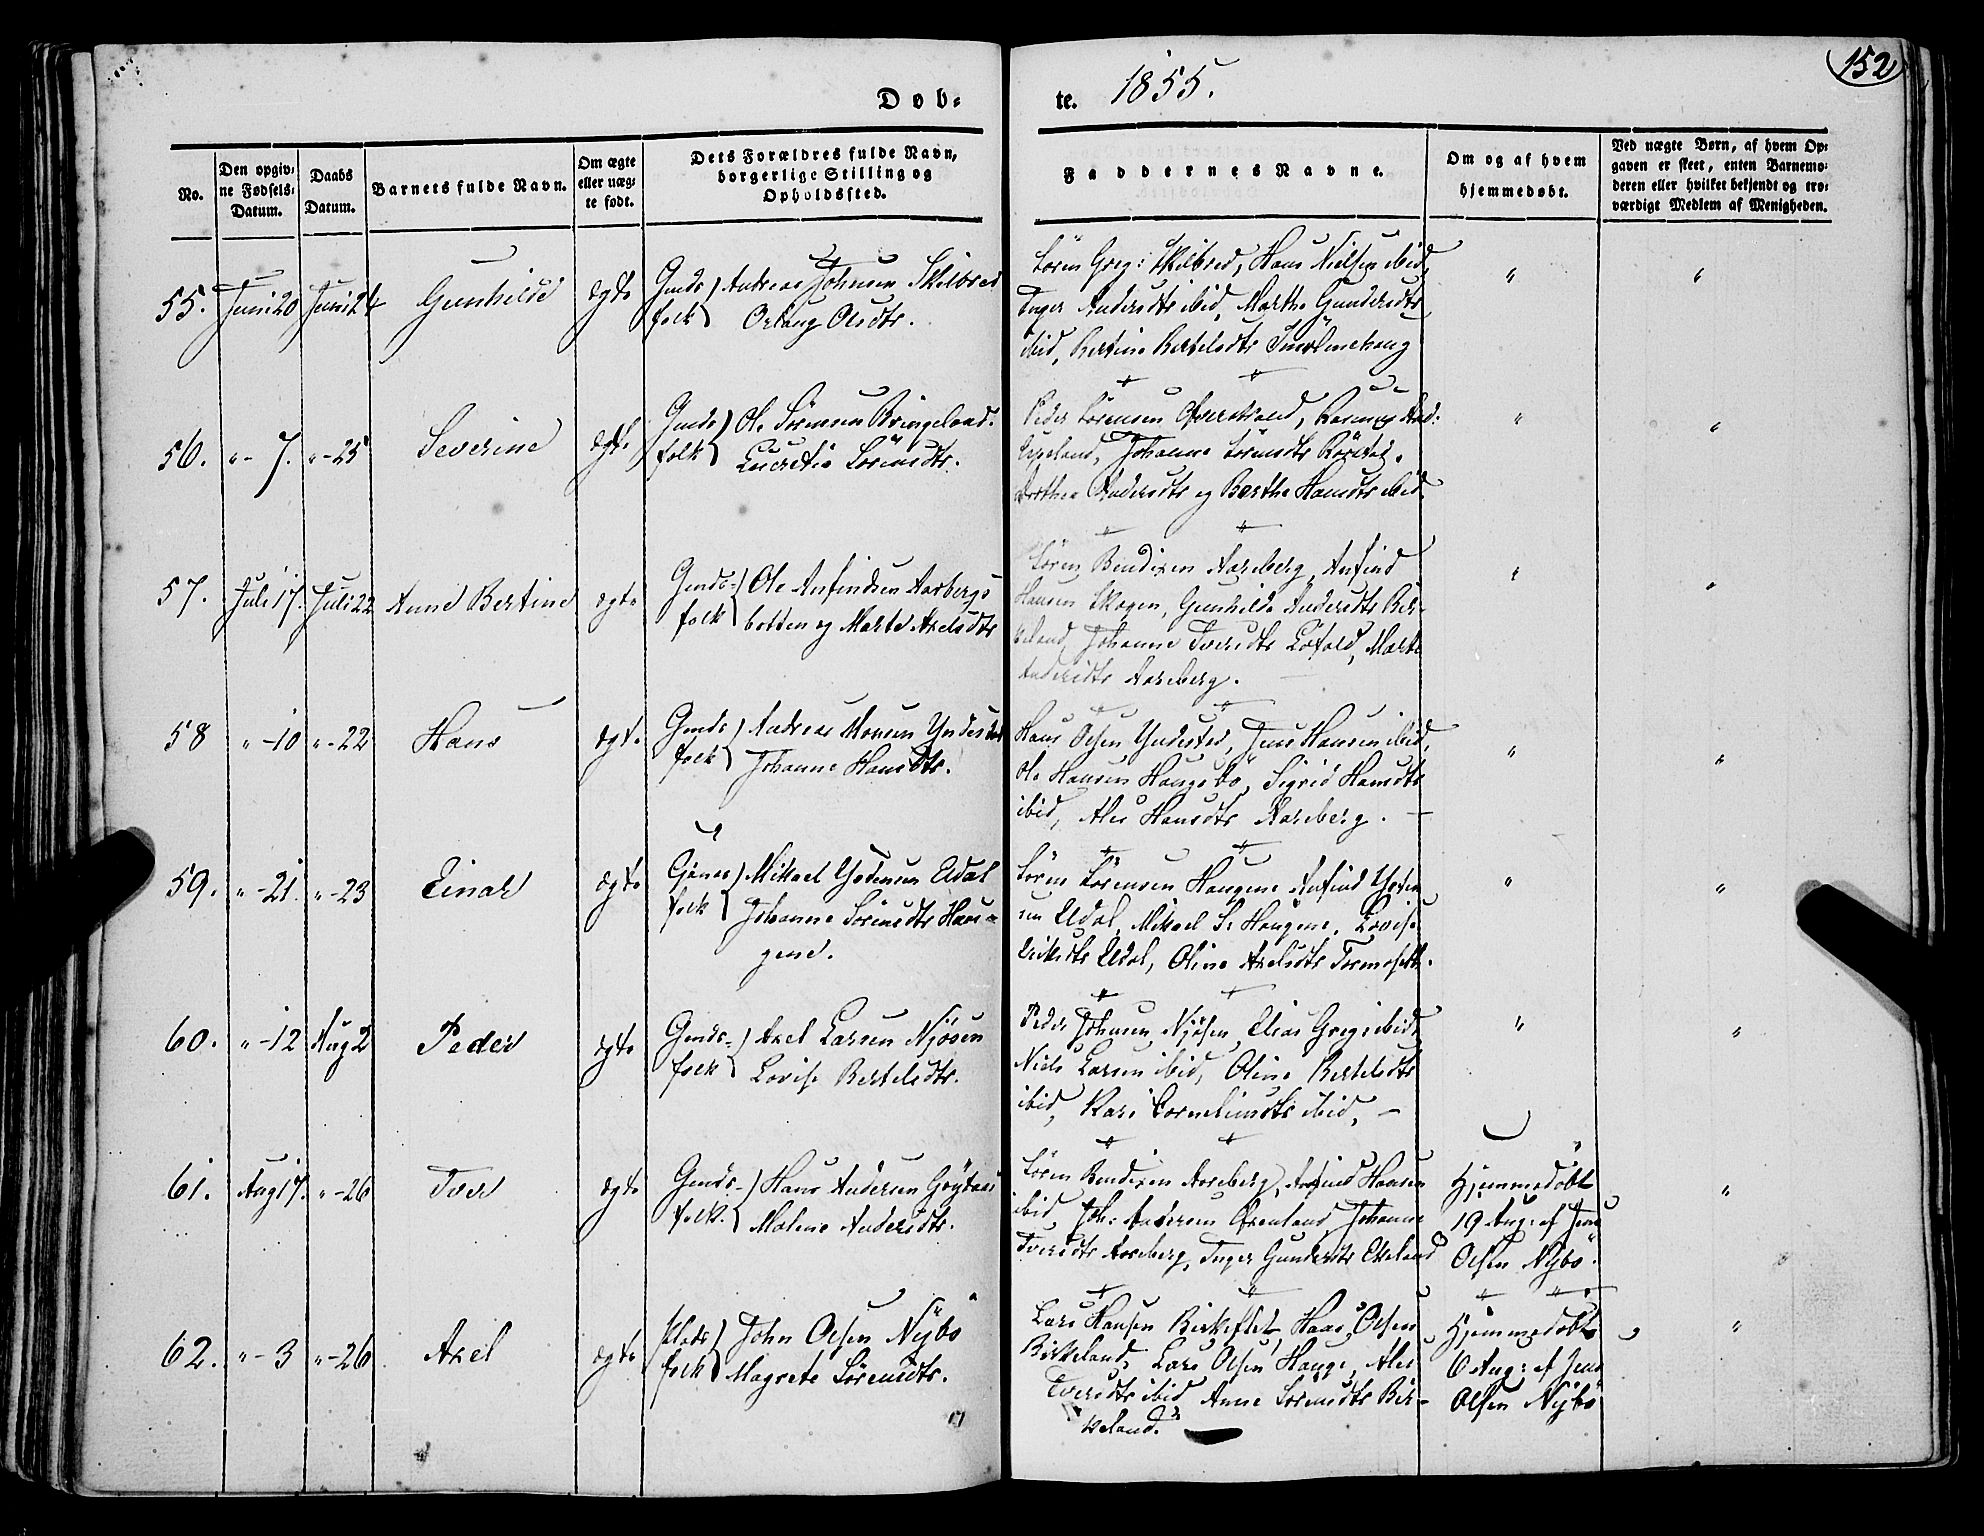 152
Døb-
te. 1855.
No.
Den opgiv-
ne Fødsels-
Datum.
Daabs
Datum.
Barnets fulde Navn.
Om ægte
eller uæg-
te født.
Dets Forældres fulde Navn,
borgerlige Stilling og
Opholdssted.
Faddernes Navne.
Om og af hvem
hjemmedøbt.
Ved uægte Børn, af hvem Op-
gaven er skeet, enten Barnemo-
deren eller hvilket bekjendt og tro-
værdigt Medlem af Menigheden.
55. Juni 20 Juni 24 Gunhilde ægte
Gmds folk Andreas Johnsen Skilbred
Oelaug Olsdtr.
Sören Greg: Skilbred, Hans Nielsen ibid,
Inger Andersdtr ibid, Marthe Gundersdtr
ibid, Bertine Bertelsdtr
" "
56. "-7. "-25 Severine ægte
Gmds folk Ole Sörensen Bringeland.
Lucretia Sörensdtr.
Peder Sörensen Rasmus And:
Johanne Sörensdtr
Dorthea Andersdtr og Berthe Hansdtr ibid.
" "
57. Juli 17. Juli 22 Anne Bertine ægte
Gmds- folk Ole Anfindsen Aarbergs
botten og Marte Axelsdtr
Sören Bendixen Aarberg, Anfind
Hansen Skogen, Gunhilde Andersdtr Bir-
keland, Johanne Iversdtr Marte
Andersdtr Aarberg.
" "
58 "-10 "-22 Hans ægt.
Gmds folk Andreas Monsen Yndestad
Johanne Hansdtr.
Hans Olsen Yndestad, Jens Hansen ibid,
Ole Hansen Haugsbö, Sigrid Hansdtr
ibid, Ales Hansdtr Aarberg. —
" "
59. "-21. "-23 Einar ægte
folk Mikael Udal
Johanne Sörensdtr Hau-
gene.
Sören Sörensen Haugene Anfind
sen Udal, Mikael Sr Haugene, Lovise
Udal, Oline Axelsdtr
" "
60. "-12 Aug 2 Peder ægte
Gmds- folk Axel Larsen Njösen
Lovise Bertelsdtr.
Peder Johnsen Njösen, Elias Greg: ibid,
Niels Larsen ibid, Oline Bertelsdtr
ibid, Kari Corneliusdtr ibid, —
" "
61. Aug 17. "-26 Iver ægte
Gmds- folk. Hans Andersen
Malene Andersdtr.
Sören Bendixen Aarberg, Anfind Hansen
ibid, Joh: Andersen Johanne
Iversdtr Aarberg, Inger Gundersdtr
Hjemmedöbt
19 Aug: af Jens
Olsen Nybö.
"
62. "-3 "-26 Axel ægte
Plads folk John Olsen Nybö
Magrete Sörensdtr.
Lars Hansen Hans Olsen
Birkeland, Lars Olsen Hauge, Ales
Iversdtr ibid Anne Sörensdtr Bir-
keland.
Hjemmedöbt
6 Aug: af Jens
Olsen Nybö
"